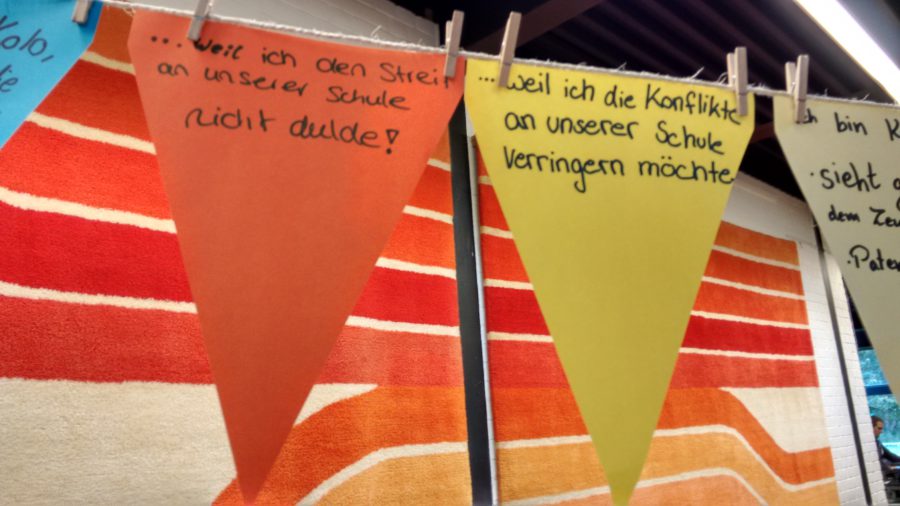 Kolo,
... weil ich den Streit
an unserer Schule
nicht dulde!
... weil ich die Konflikte
an unserer Schule
Verringern möchte.
bin
sieht
dem